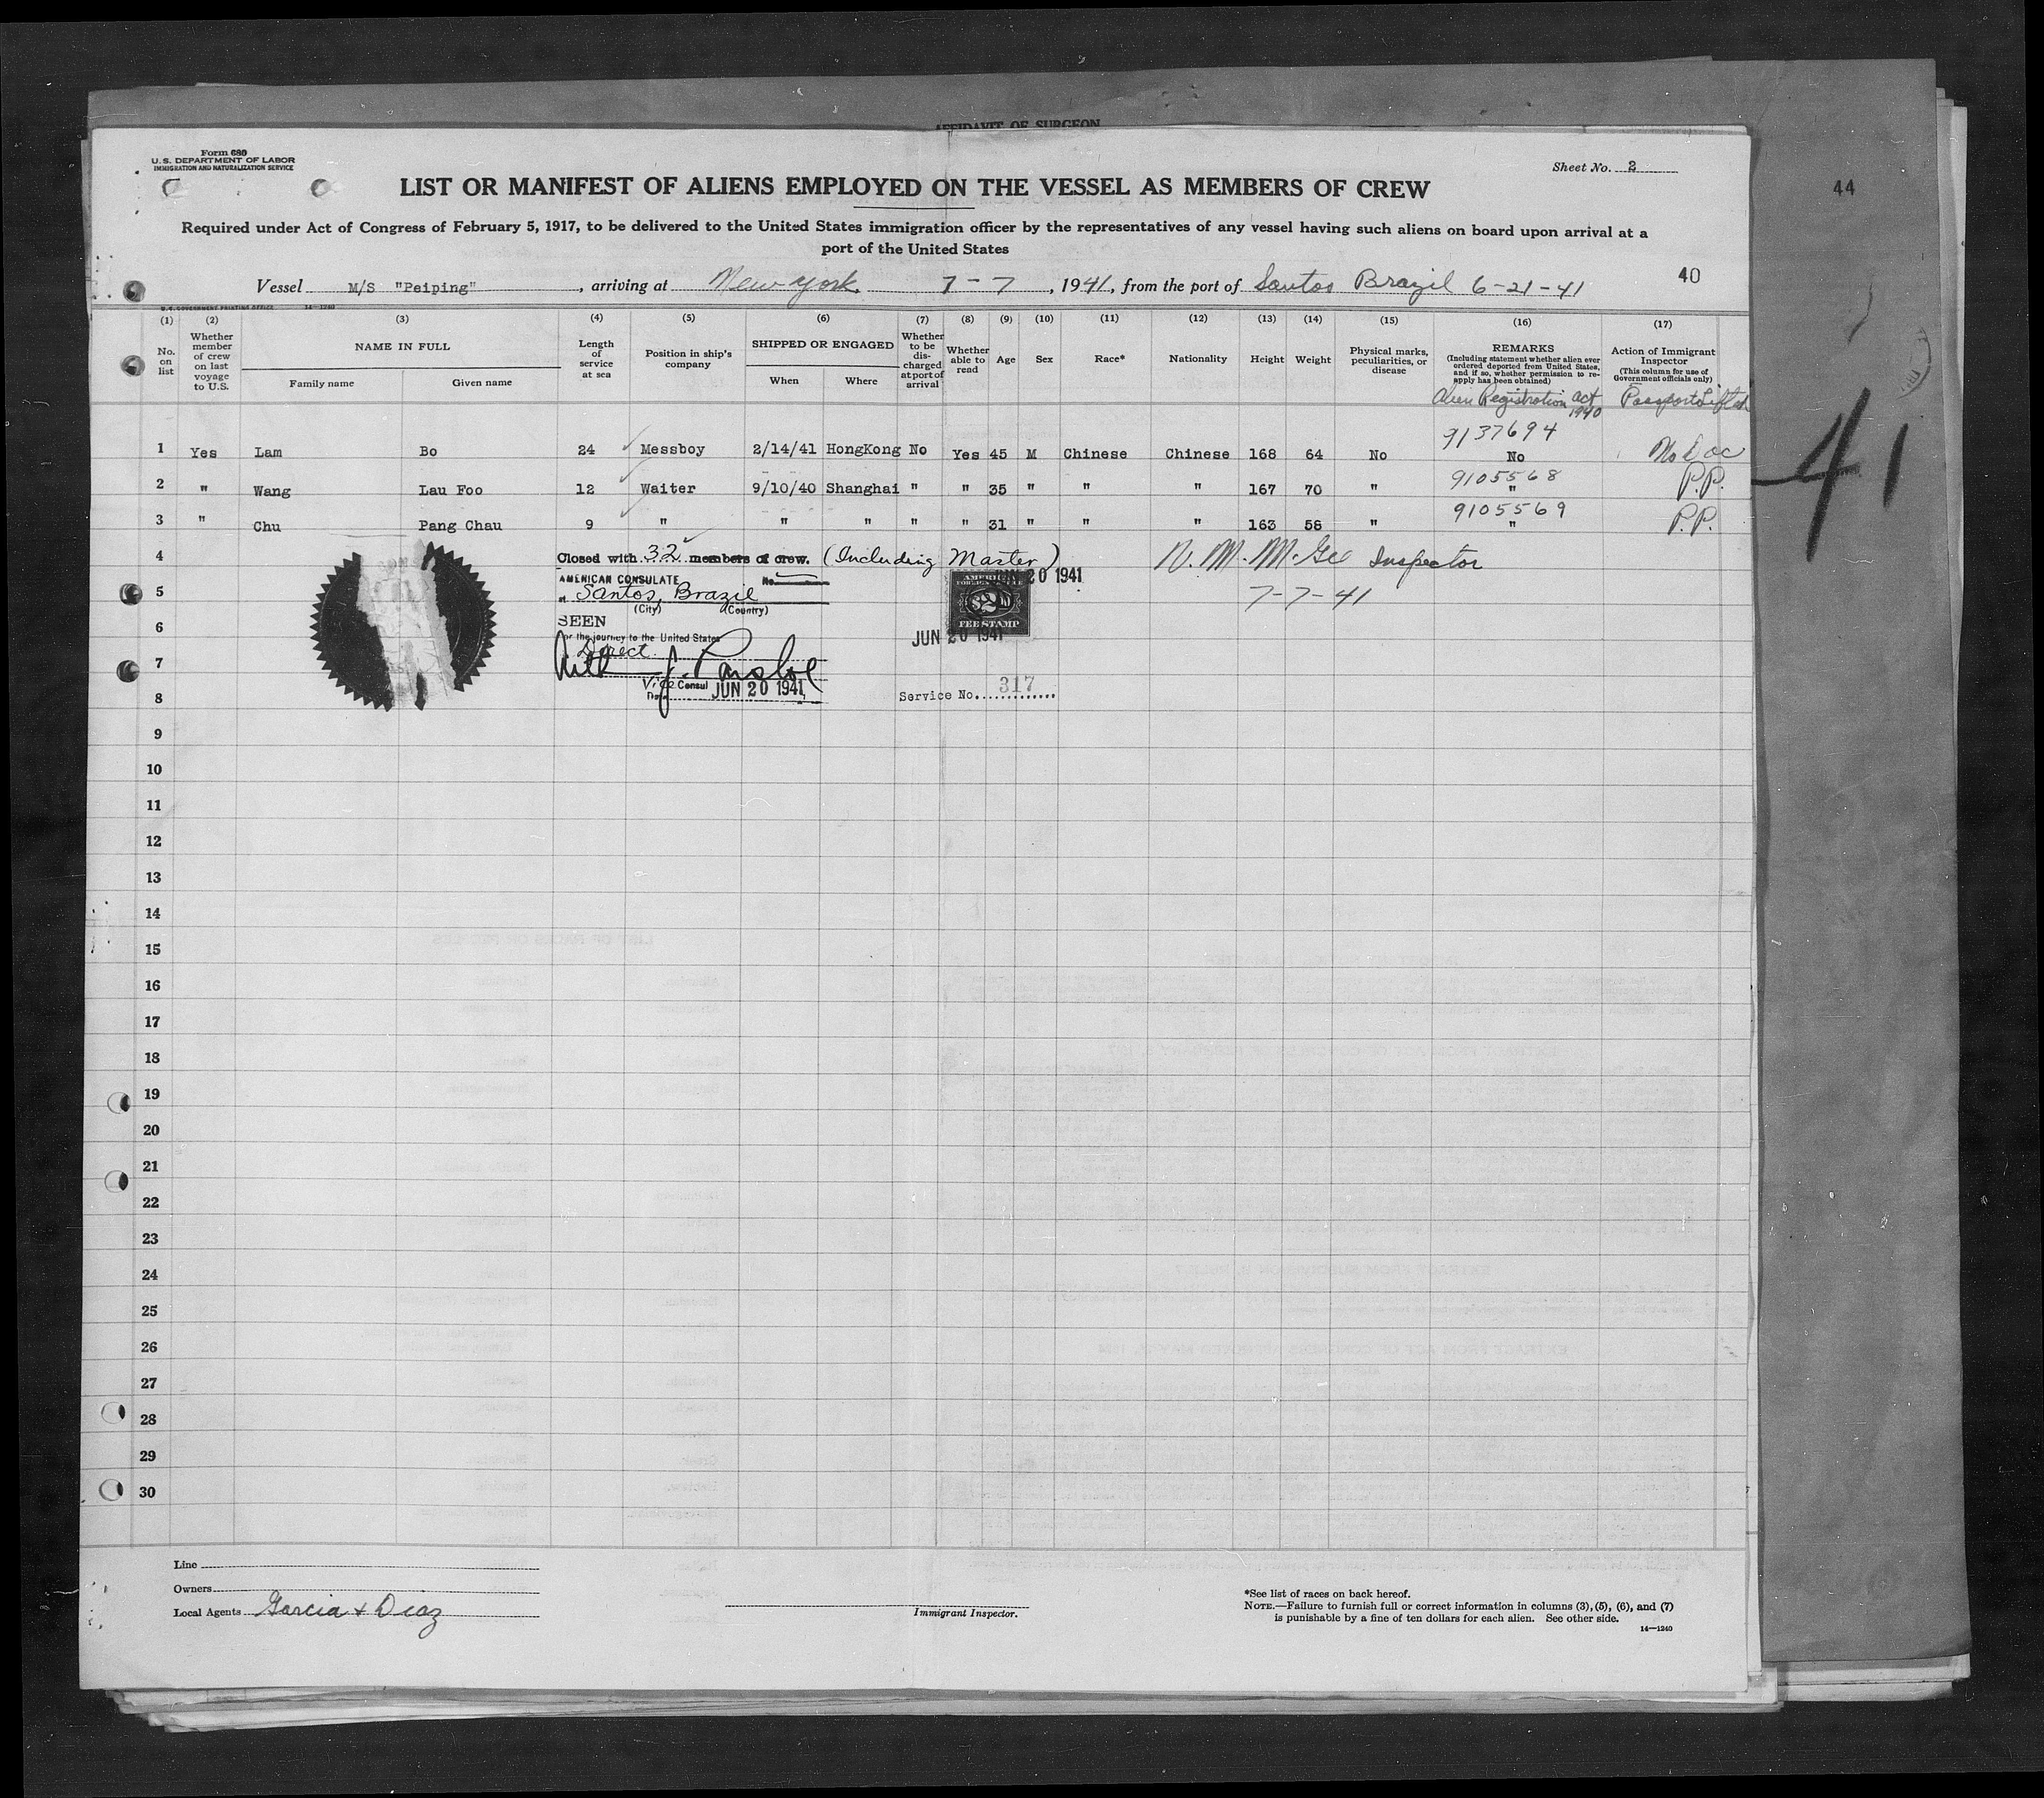 AFFIDAVIT OF SURGEON
Form 680
U.S. DEPARTMENT OF LABOR
IMMIGRATION AND NATURALIZATION SERVICE
Sheet No. 2
44
LIST OR MANIFEST OF ALIENS EMPLOYED ON THE VESSEL AS MEMBERS OF CREW
Required under Act of Congress of February 5, 1917, to be delivered to the United States immigration officer by the representatives of any vessel having such aliens on board upon arrival at a
port of the United States
40
Vessel M/S "Peiping", arriving at New York 7-7, 1941, from the port of Santos Brazil 6-21-41
U.S. GOVERNMENT PRINTING OFFICE 14-1240
(1) (2) (3) (4) (5) (6) (7) (8) (9) (10) (11) (12) (13) (14) (15) (16) (17)
No. on list
Whether member of crew on last voyage to U.S.
NAME IN FULL
Family name Given name
Length of service at sea
Position in ship's company
SHIPPED OR ENGAGED
When Where
Whether to be discharged at port of arrival
Whether able to read
Age Sex Race* Nationality Height Weight
Physical marks, peculiarities, or disease
REMARKS
(Including statement whether alien ever ordered deported from United States, and if so, whether permission to reapply has been obtained)
Action of Immigrant Inspector
(This column for use of Government officials only)
Alien Registration Act 1940 Passports Lifted
9137694
1 Yes Lam Bo 24 Messboy 2/14/41 HongKong No Yes 45 M Chinese Chinese 168 64 No No No doc
9105568
2 " Wang Lau Foo 12 Waiter 9/10/40 Shanghai " " 35 " " " 167 70 " " P.P.
9105569
3 " Chu Pang Chau 9 " " " " " 31 " " " 163 58 " " P.P.
41
4 Closed with 32 members of crew. (Including Master) N. M. McGee Inspector
AMERICAN CONSULATE No.
JUN 20 1941
5 at Santos, Brazil 7-7-41
(City) (Country)
AMERICAN FOREIGN SERVICE
$2
FEE STAMP
6 SEEN
For the journey to the United States
JUN 20 1941
7 Direct
Vice Consul
Date JUN 20 1941
8 Service No. 317
9
10
11
12
13
14
15
16
17
18
19
20
21
22
23
24
25
26
27
28
29
30
Line
Owners
Local Agents Garcia & Diaz
Immigrant Inspector.
*See list of races on back hereof.
NOTE.—Failure to furnish full or correct information in columns (3), (5), (6), and (7)
is punishable by a fine of ten dollars for each alien. See other side.
14-1240